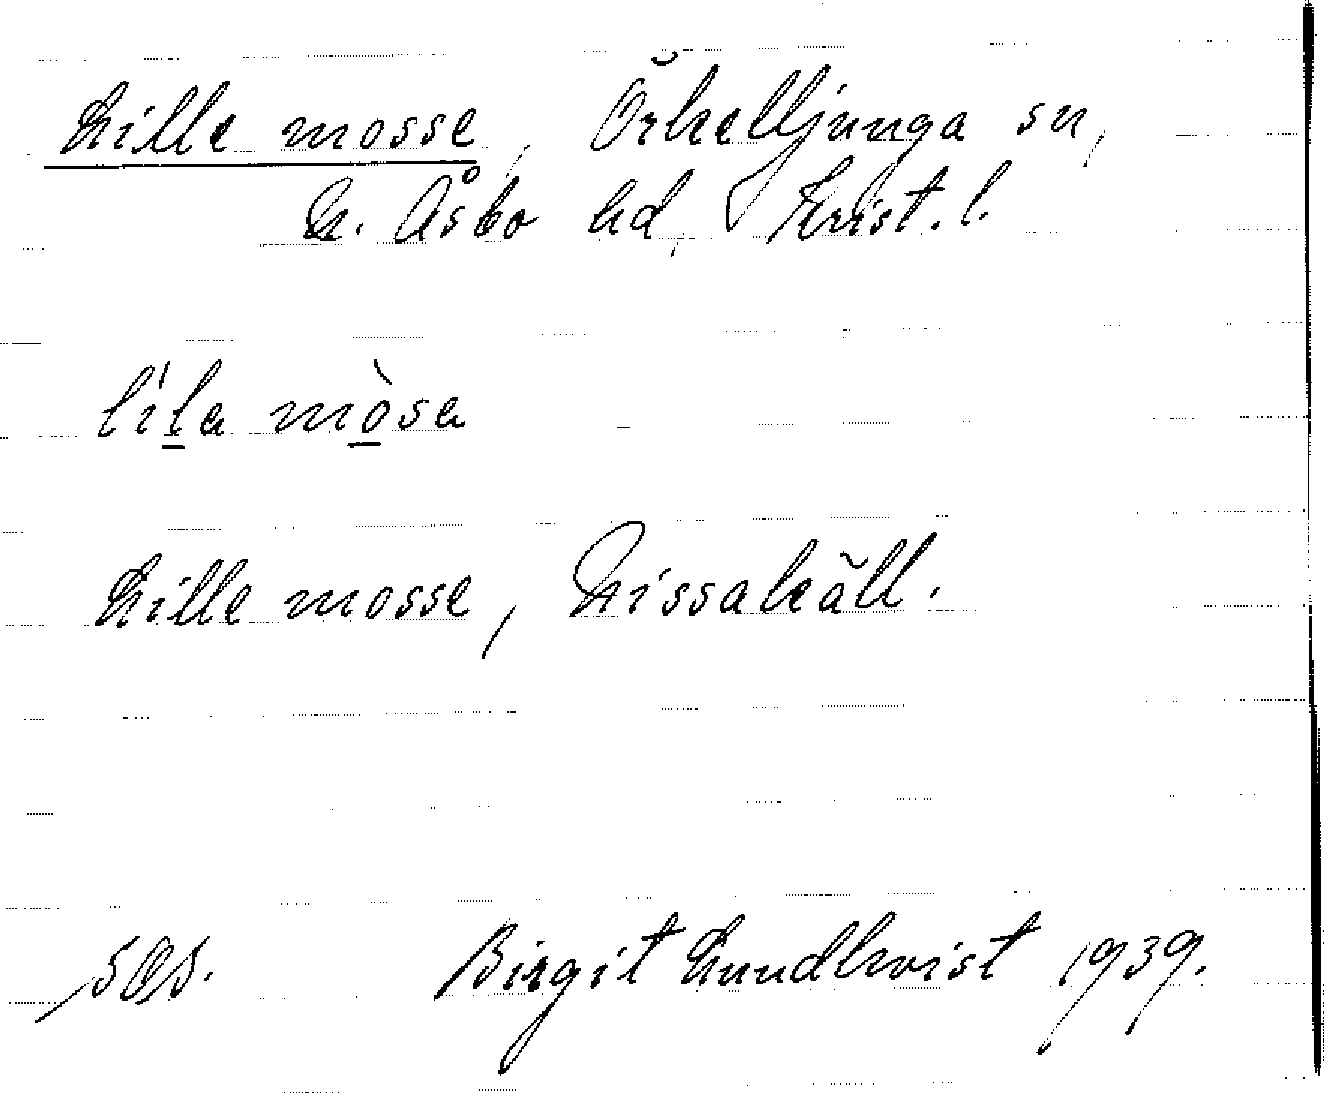 Lille mosse, Örkelljunga sn,
N. Åsbo hd, Krist. l.
lila mòsa
Lille mosse, Lissakäll.
SOS. Birgit Lundkvist 1939.